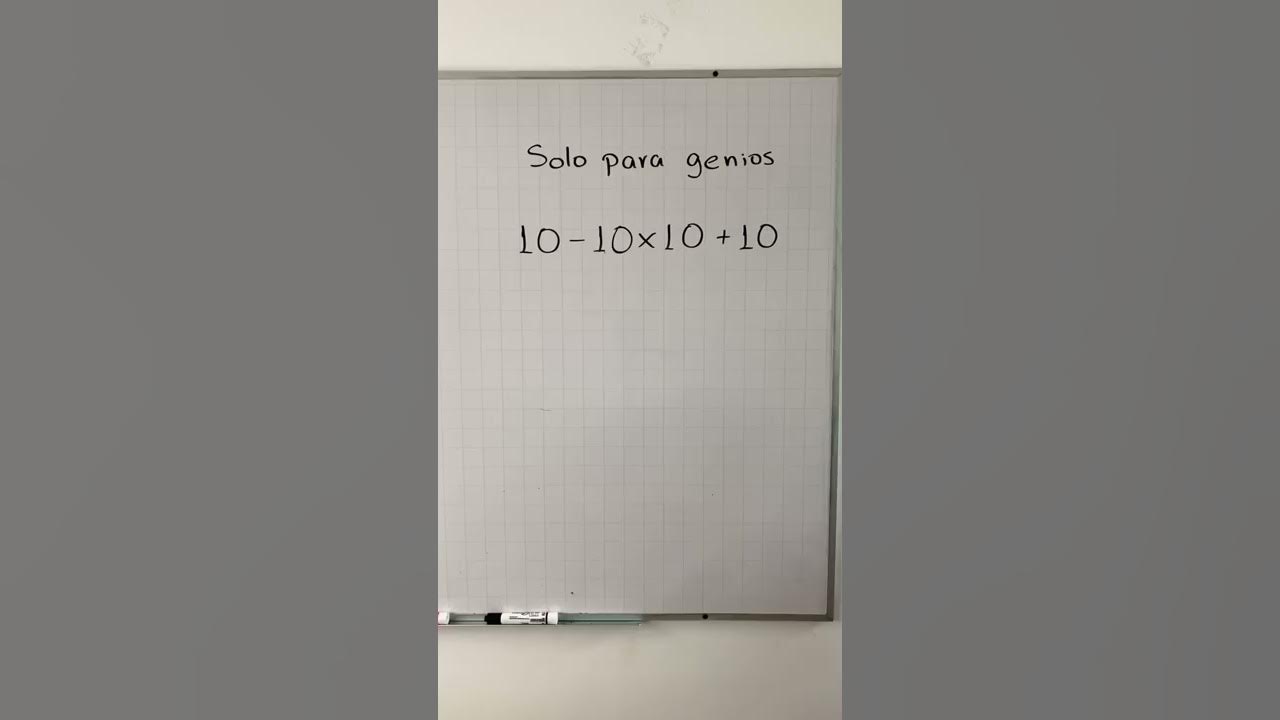 Solo para genios
10 - 10 x 10 + 10